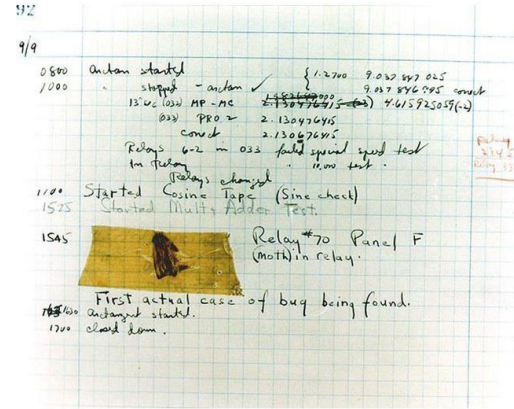 92
9/9
0800 Antan started
1000 " stopped - antan ✓ { 1.2700 9.037 847 025
9.037 846 995 correct
13"uc (032) MP - MC 2.130476415 (-3) 4.615925059(-2)
(033) PRO 2 2.130476415
correct 2.130676415
Relays 6-2 in 033 failed special speed test
In Relay " 10.000 test .
Relays changed
1100 Started Cosine Tape (Sine check)
1525 Started Mult + Adder Test.
1545 Relay #70 Panel F
(moth) in relay.
First actual case of bug being found.
1630 antangent started.
1700 closed down .